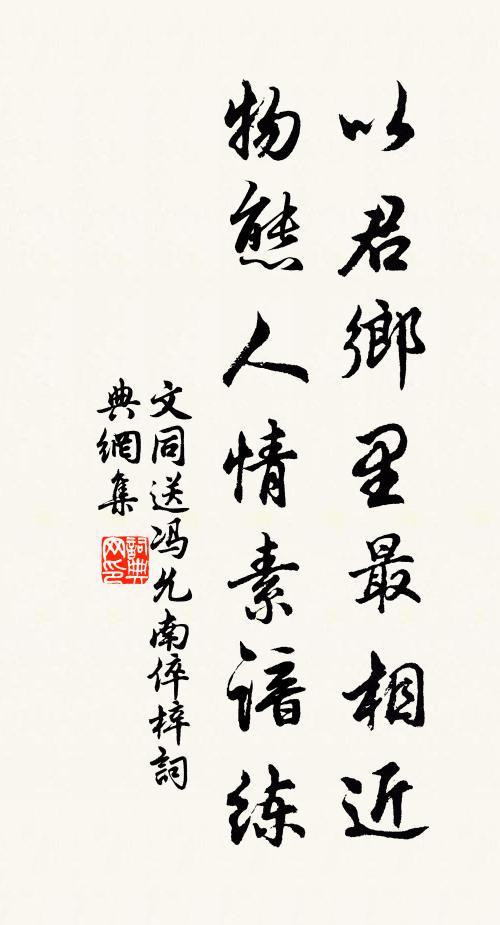 以君鄉里最相近
物態人情素諳练
文同送冯允南倅梓詞
典網集
詞典网印